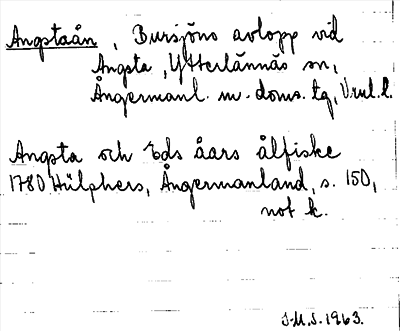 Angstaån, Bursjöns avlopp vid
Angsta, Ytterlännäs sn,
Ångermanl. m. doms. tg, V.nrl. l.
Angsta och Eds åars ålfiske
1780 Hülphers, Ångermanland, s. 150,
not k.
S.M.S. 1963.